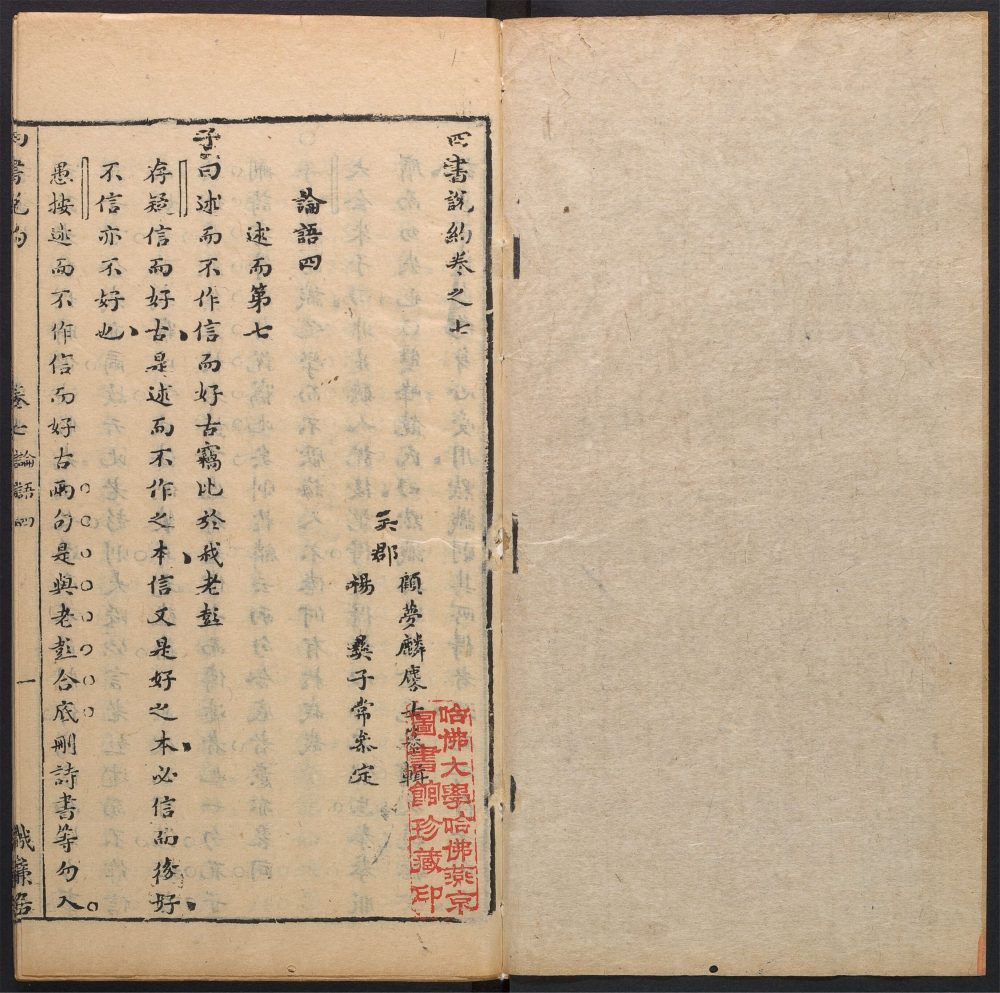 四書說約卷之七
顧夢麟麐士纂輯
吳郡
楊彝子常叅定
論語四
述而第七
子曰述而不作信而好古竊比於我老彭
存疑信而好古是述而不作之本信又是好之本必信而後好
不信亦不好也
愚按述而不作信而好古兩句是與老彭合底刪詩書等句入
四書說約 卷七論語四 一 織簾居
哈佛大學哈佛燕京
圖書館珍藏印